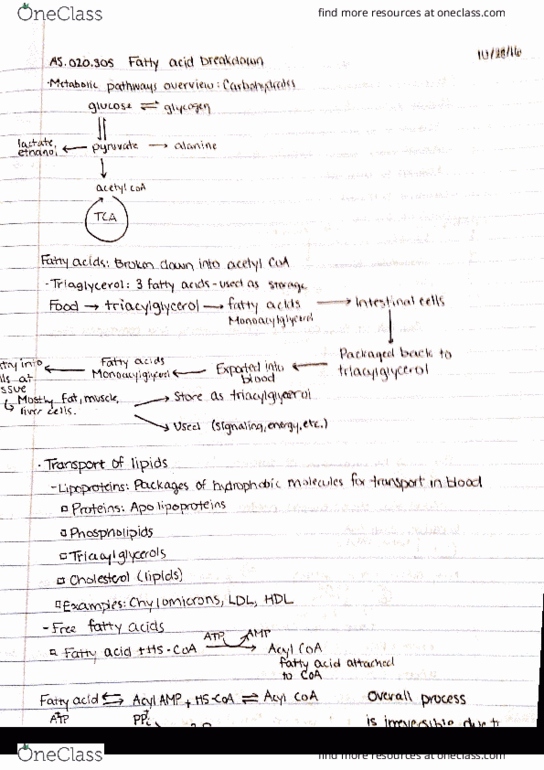 OneClass
find more resources at oneclass.com
10/28/16
AS.020.305 Fatty acid breakdown
·Metabolic pathways overview: Carbohydrates
glucose ⇌ glycogen
lactate, ethanol ← pyruvate → alanine
acetyl coA
TCA
Fatty acids: Broken down into acetyl CoA
- Triaglycerol: 3 fatty acids - used as storage
Food → triacylglycerol → fatty acids → Intestinal cells
Monoacylglycerol
Packaged back to
triacylglycerol
Exported into
blood
Fatty acids
Monoacylglycerol
try into
lls at
ssue
Mostly fat, muscle,
liver cells.
→ Store as triacylglycerol
→ Used (signaling, energy, etc.)
· Transport of lipids
- Lipoproteins: Packages of hydrophobic molecules for transport in blood
Proteins: Apo lipoproteins
Phospholipids
Triacylglycerols
Cholesterol (lipids)
Examples: Chylomicrons, LDL, HDL
- Free fatty acids
ATP AMP
Fatty acid + HS-CoA → Acyl CoA
fatty acid attached
to CoA
Fatty acid ⇌ Acyl AMP + HS-CoA ⇌ Acyl CoA Overall process
ATP PPi is irreversible due t
OneClass
find more resources at oneclass.com